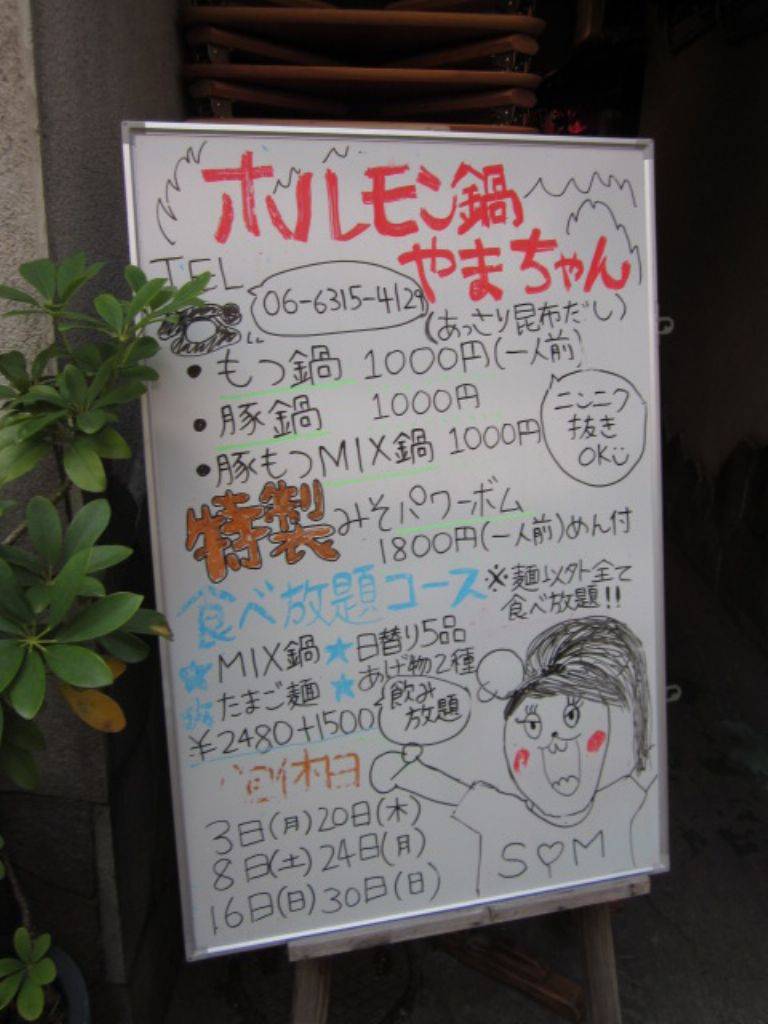 ホルモン鍋
やまちゃん
TEL
06-6315-4129
(あっさり昆布だし)
・もつ鍋 1000円(一人前)
・豚鍋 1000円
・豚もつMIX鍋 1000円
ニンニク
抜き
OK
特製みそパワーボム
1800円(一人前)めん付
食べ放題コース
※麺以外全て
食べ放題!!
★MIX鍋★日替り5品
たまご麺★あげ物2種
¥2480+1500
飲み
放題
休日
3日(月)20日(木)
8日(土)24日(月)
16日(日)30日(日)
S♡M